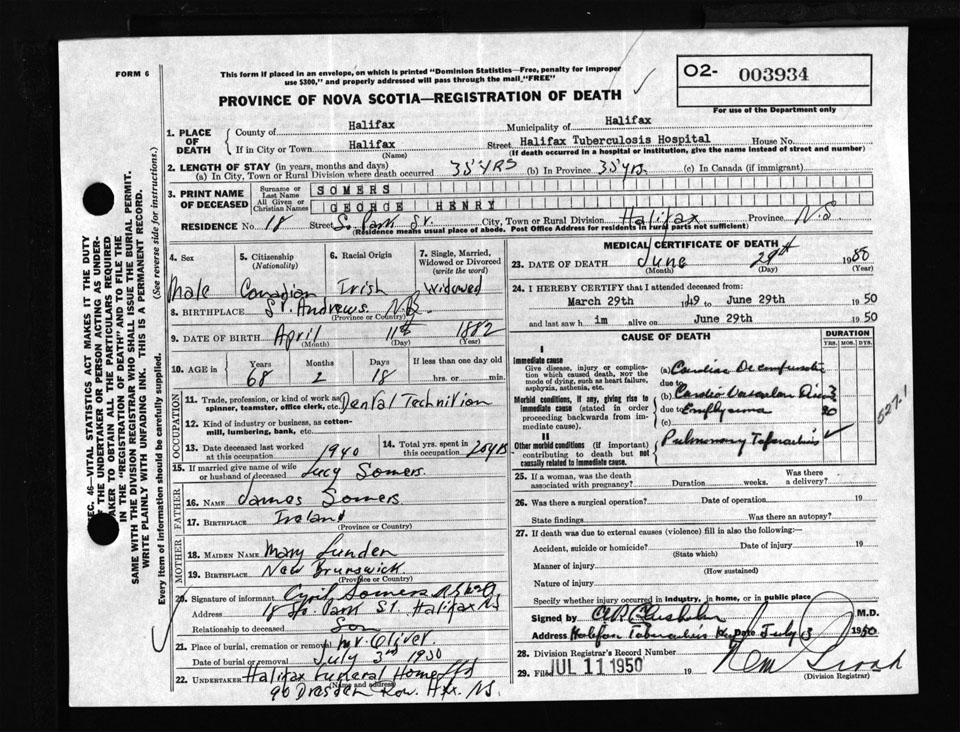 FORM 6
This form if placed in an envelope, on which is printed "Dominion Statistics—Free, penalty for improper
use $300," and properly addressed will pass through the mail "FREE"
PROVINCE OF NOVA SCOTIA—REGISTRATION OF DEATH
O2- 003934
For use of the Department only
1. PLACE OF DEATH
County of Halifax Municipality of Halifax
If in City or Town Halifax Street Halifax Tuberculosis Hospital House No.
(Name) (If death occurred in a hospital or institution, give the name instead of street and number)
2. LENGTH OF STAY (in years, months and days)
(a) In City, Town or Rural Division where death occurred 35 YRS (b) In Province 35 yrs. (c) In Canada (if immigrant)
3. PRINT NAME OF DECEASED
Surname or Last Name SOMERS
All Given or Christian Names GEORGE HENRY
RESIDENCE No. 18 Street So. Park St. City, Town or Rural Division Halifax Province N.S
(Residence means usual place of abode. Post Office Address for residents in rural parts not sufficient)
4. Sex 5. Citizenship (Nationality) 6. Racial Origin 7. Single, Married, Widowed or Divorced (write the word)
Male Canadian Irish Widowed
8. BIRTHPLACE St. Andrews N.B.
(Province or Country)
9. DATE OF BIRTH April 11th 1882
(Month) (Day) (Year)
10. AGE in Years Months Days If less than one day old
68 2 18 hrs. or min.
OCCUPATION
11. Trade, profession, or kind of work as
spinner, teamster, office clerk, etc. Dental Technition
12. Kind of industry or business, as cotton-
mill, lumbering, bank, etc.
13. Date deceased last worked at this occupation 1940 14. Total yrs. spent in this occupation 20 yrs
15. If married give name of wife
or husband of deceased Lucy Somers.
FATHER
16. Name James Somers
17. Birthplace Ireland
(Province or Country)
MOTHER
18. Maiden Name Mary
19. Birthplace New Brunswick
(Province or Country)
20. Signature of informant Cyril Somers
Address 18 So. Park St. Halifax NS
Relationship to deceased Son
21. Place of burial, cremation or removal Mt. Olivet.
Date of burial or removal July 3rd 1950
22. UNDERTAKER Halifax Funeral Home
(Name and address)
90 Dresden Row. Hfx. N.S.
MEDICAL CERTIFICATE OF DEATH
23. DATE OF DEATH June 29th 1950
(Month) (Day) (Year)
24. I HEREBY CERTIFY that I attended deceased from:
March 29th 1949 to June 29th 1950
and last saw h im alive on June 29th 1950
CAUSE OF DEATH DURATION
YRS. MOS. DYS.
I
Immediate cause
Give disease, injury or complica-
tion which caused death, NOT the
mode of dying, such as heart failure,
asphyxia, asthenia, etc.
(a) Cardiac
due to
Morbid conditions, if any, giving rise to
immediate cause (stated in order
proceeding backwards from im-
mediate cause).
(b) Cardio Vascular
due to Emphysema
(c)
II
Other morbid conditions (if important)
contributing to death but not
causally related to immediate cause.
Pulmonary Tuberculosis
527-1
25. If a woman, was the death
associated with pregnancy? Duration weeks. Was there a delivery?
26. Was there a surgical operation? Date of operation 19
State findings Was there an autopsy?
27. If death was due to external causes (violence) fill in also the following:—
Accident, suicide or homicide? Date of injury 19
(State which)
Manner of injury
(How sustained)
Nature of injury
Specify whether injury occurred in industry, in home, or in public place
Signed by M.D.
Address Halifax Tuberculosis Date July 3 1950
28. Division Registrar's Record Number
29. Filed JUL 11 1950 19
(Division Registrar)
SEC. 46—VITAL STATISTICS ACT MAKES IT THE DUTY
OF THE UNDERTAKER OR PERSON ACTING AS UNDER-
TAKER TO OBTAIN ALL THE PARTICULARS REQUIRED
IN THE "REGISTRATION OF DEATH" AND TO FILE THE
SAME WITH THE DIVISION REGISTRAR WHO SHALL ISSUE THE BURIAL PERMIT.
WRITE PLAINLY WITH UNFADING INK. THIS IS A PERMANENT RECORD.
Every item of information should be carefully supplied. (See reverse side for instructions.)